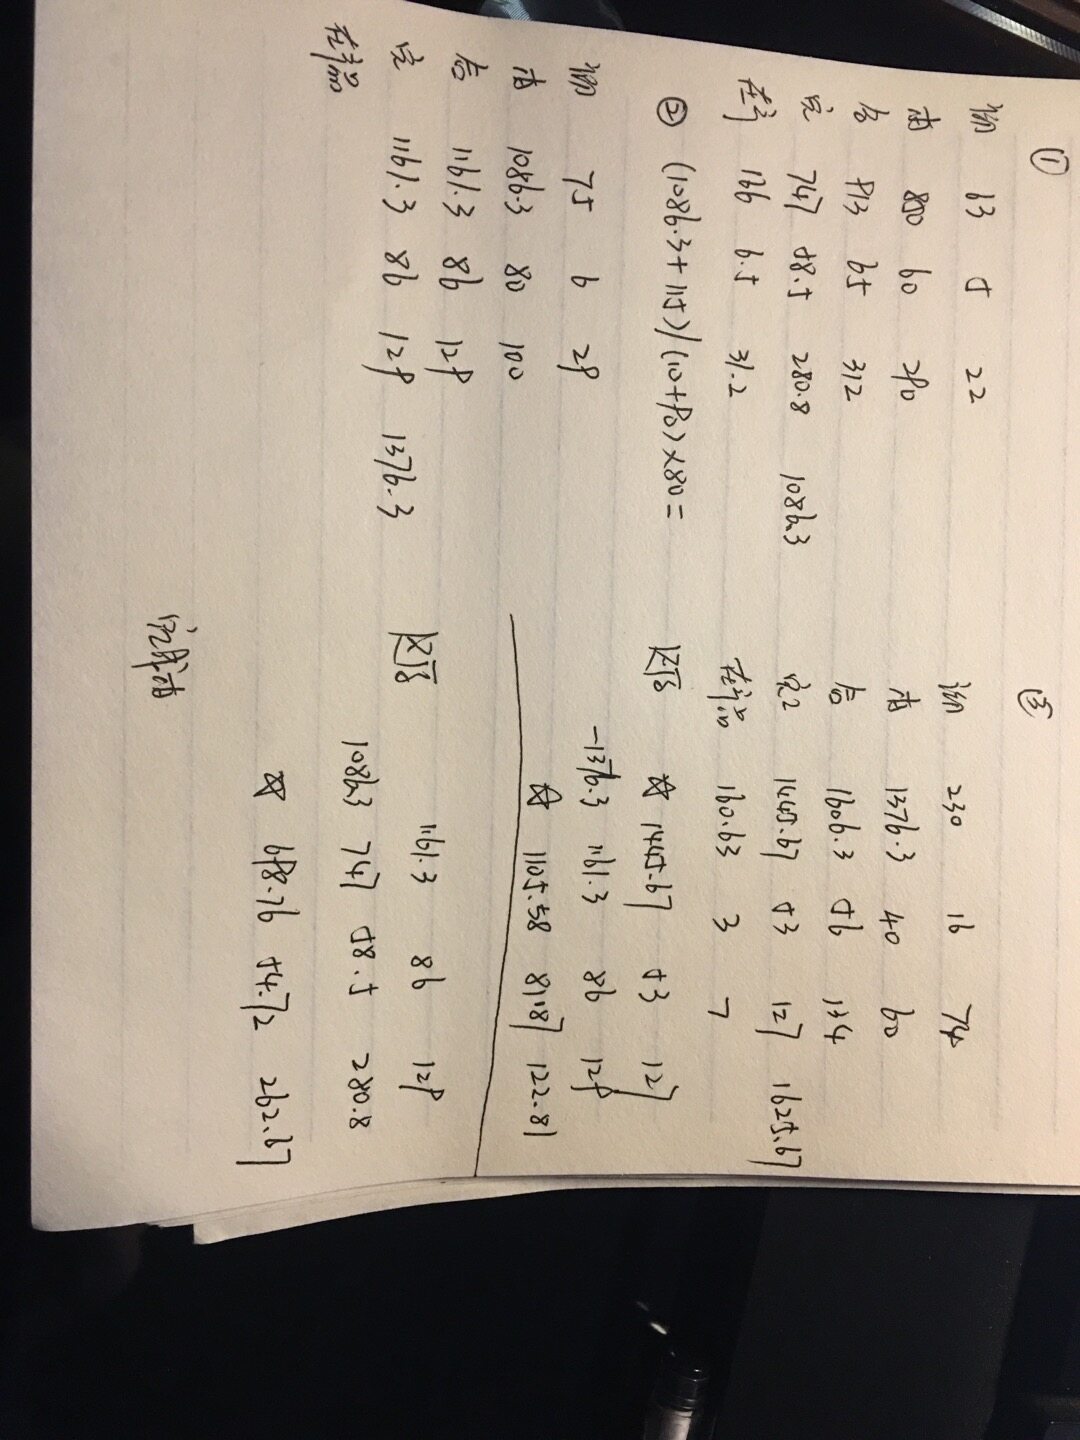 ①
初 63 5 22
本 850 60 290
合 913 65 312
完 747 58.5 280.8 1086.3
在产 166 6.5 31.2
② (1086.3+115)/(10+90)×80=
初 75 6 29
本 1086.3 80 100
合 1161.3 86 129
完 1161.3 86 129 1376.3
在产品
③
初 230 16 74
本 1376.3 40 60
合 1606.3 56 134
完2 1445.67 53 127 1625.67
在产品 160.63 3 7
还原 ☆ 1445.67 53 127
-1376.3 1161.3 86 129
☆ 1105.38 81.87 122.81
还原 1161.3 86 129
1086.3 747 58.5 280.8
☆ 698.76 54.72 262.67